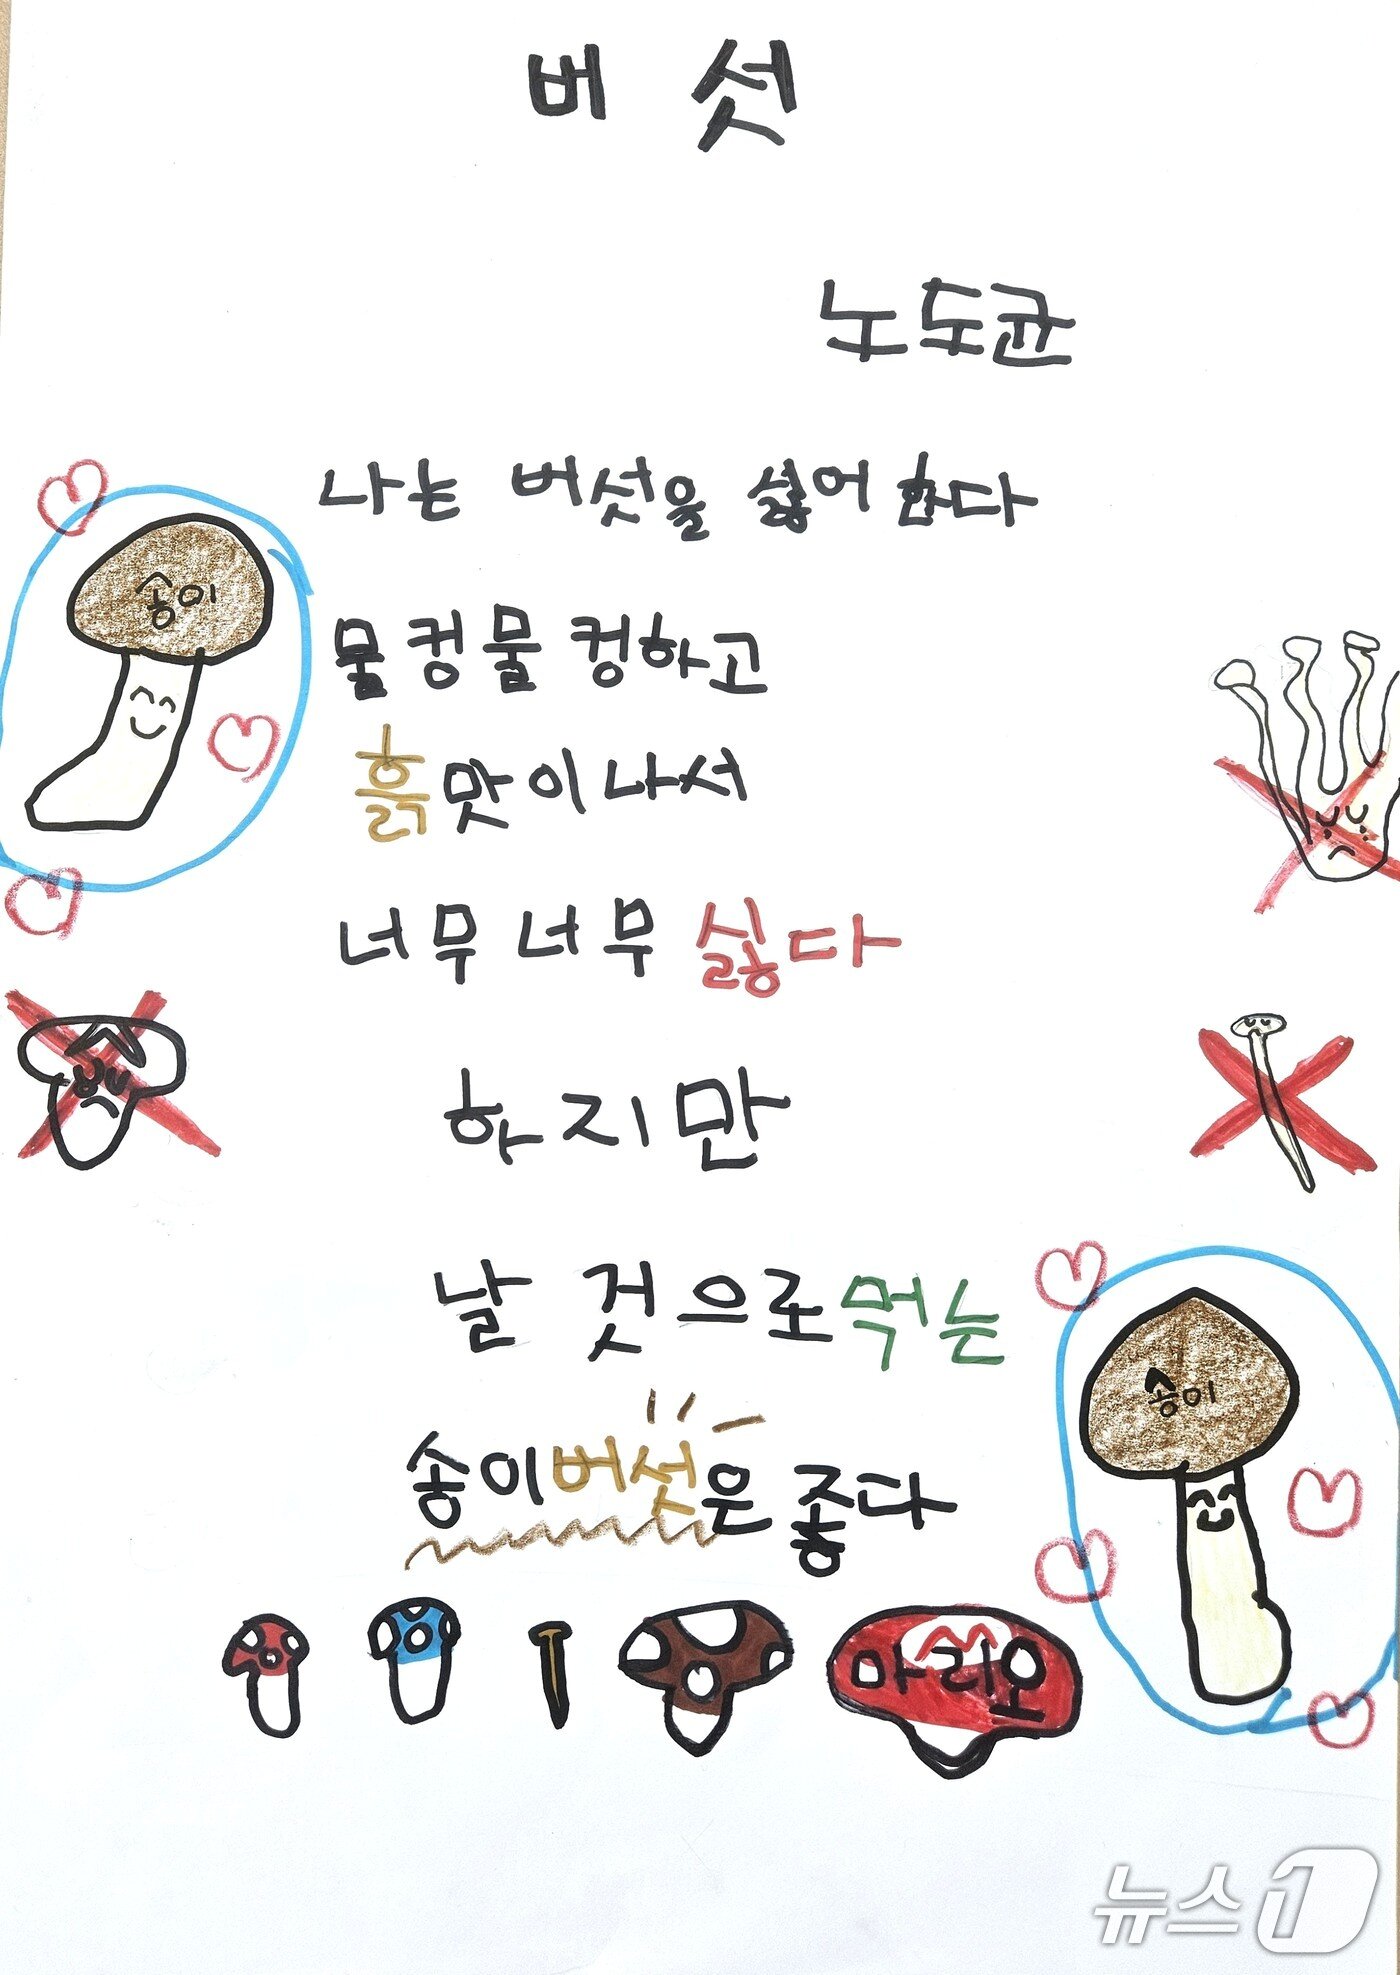 버섯
노도균
나는 버섯을 싫어 한다
송이
물컹물컹하고
흙맛이나서
너무너무 싫다
하지만
날 것으로먹는
송이
송이버섯은좋다
마리오
뉴스1